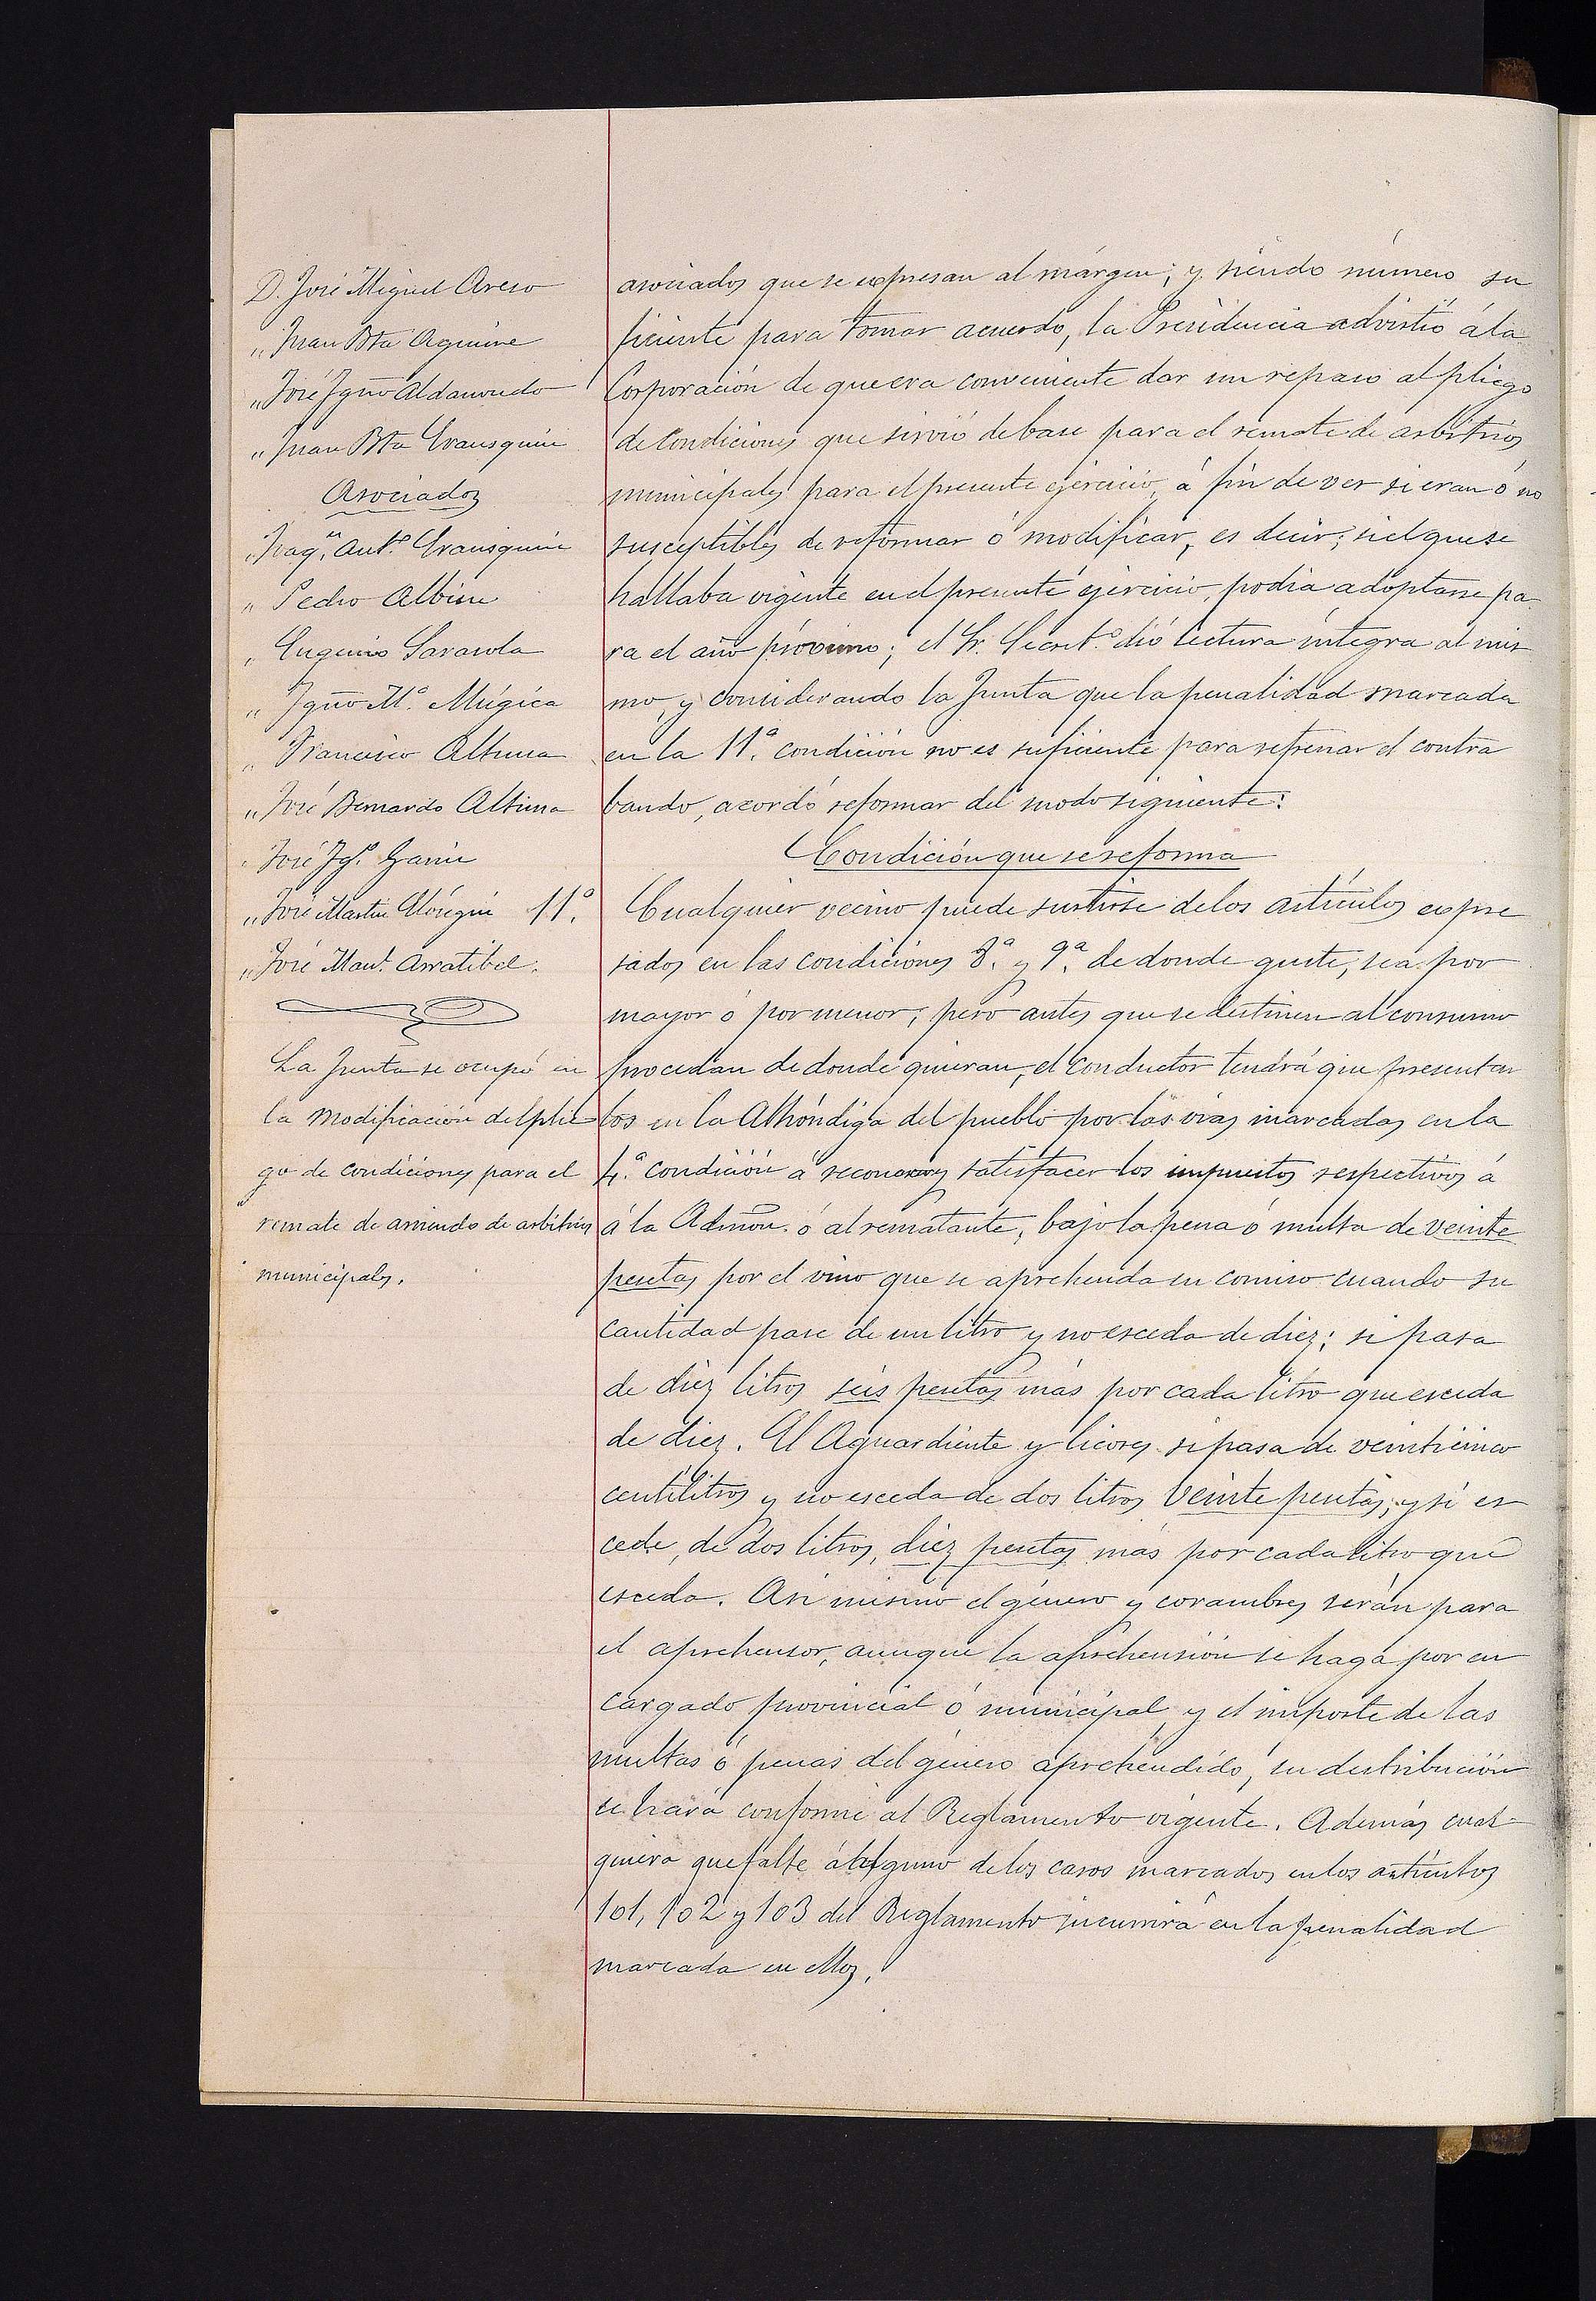 D. José Miguel Areso
" Juan Bta Aguirre
" José Ygno Aldanondo
" Juan Bta Erausquin
Asociados
" Joaqn. Anto. Erausquin
" Pedro Albisu
" Eugenio Sarasola
" Ygno Ma. Múgica
" Francisco Altuna
" José Bernardo Altuna
" José Ygo. Garin
" José Martin
" José Manl. Arratibel.
La Junta se ocupó en
la modificación del plie-
go de condiciones para el
remate de arriendo de arbitrios
municipales.
asociados que se expresan al márgen; y siendo número su
ficiente para tomar acuerdo, la Presidencia advirtió á la
Corporación de que era conveniente dar un repaso al pliego
de condiciones que sirvió de base para el remate de arbitrios
municipales para el presente ejercicio, á fin de ver si eran ó no
susceptibles de reformar ó modificar, es decir; si el que se
hallaba vigente en el presente ejercicio, podia adoptarse pa
ra el año próximo; el Sr. Secret.o dió lectura íntegra al mis
mo, y considerando la Junta que la penalidad marcada
en la 11.a condición no es suficiente para refrenar el contra
bando, acordó reformar del modo siguiente:
Condición que se reforma
11.a Cualquier vecino puede surtirse de los artículos expre
sados en las condiciones 8.a y 9.a de donde guste, sea por
mayor ó por menor; pero antes que se destinen al consumo
procedan de donde quieran, el conductor tendrá que presentar
los en la Alhóndiga del pueblo por las vias marcadas en la
4.a condición á satisfacer los impuestos respectivos á
á la Admon. ó al rematante, bajo la pena ó multa de veinte
pesetas por el vino que se aprehenda en comiso cuando su
cantidad pase de un litro y no esceda de diez; si pasa
de diez litros seis pesetas más por cada litro que esceda
de diez. El Aguardiente y licores si pasa de veinticinco
centílitros y no esceda de dos litros veinte pesetas, y si es
cede, de dos litros, diez pesetas más por cada litro que
esceda. Asi mismo el género y corambres serán para
el aprehensor, aunque la aprehensión se haga por en
cargado provincial ó municipal, y el importe de las
multas ó penas del género aprehendido, su destribución
se hará conforme al Reglamento vigente. Además cual
quiera que falte á alguno de los casos marcados en los artículos
101, 102 y 103 del Reglamento incurrirá en la penalidad
marcada en ellos.